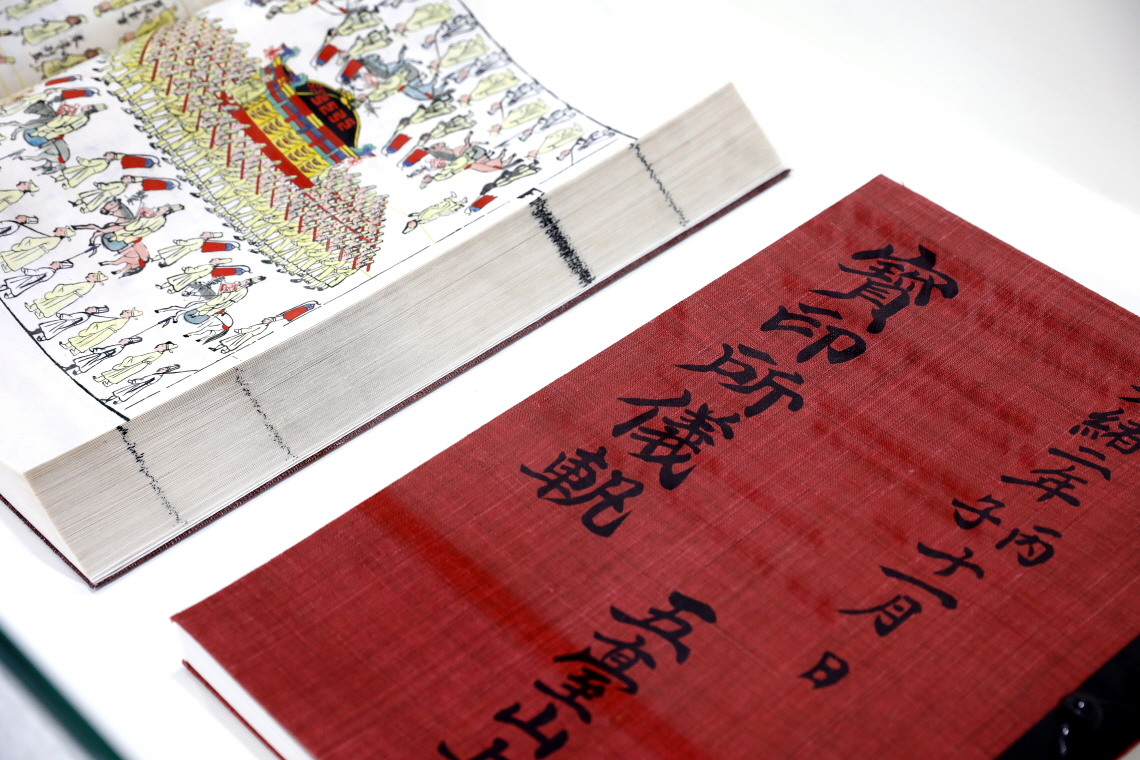 緒二年丙子十一月 日
寶印所儀軌 五臺山